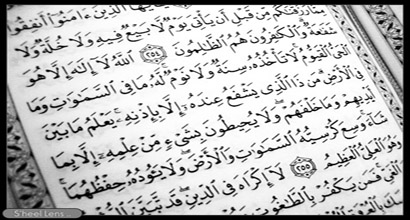 يَٰٓأَيُّهَا ٱلَّذِينَ ءَامَنُوٓا۟ أَنفِقُوا۟
مِمَّا رَزَقْنَٰكُم مِّن قَبْلِ أَن يَأْتِىَ يَوْمٌ لَّا بَيْعٌ فِيهِ وَلَا خُلَّةٌ وَلَا
شَفَٰعَةٌ وَٱلْكَٰفِرُونَ هُمُ ٱلظَّٰلِمُونَ ٢٥٤ ٱللَّهُ لَآ إِلَٰهَ إِلَّا هُوَ
ٱلْحَىُّ ٱلْقَيُّومُ لَا تَأْخُذُهُۥ سِنَةٌ وَلَا نَوْمٌ لَّهُۥ مَا فِى ٱلسَّمَٰوَٰتِ وَمَا
فِى ٱلْأَرْضِ مَن ذَا ٱلَّذِى يَشْفَعُ عِندَهُۥٓ إِلَّا بِإِذْنِهِۦ يَعْلَمُ مَا بَيْنَ
أَيْدِيهِمْ وَمَا خَلْفَهُمْ وَلَا يُحِيطُونَ بِشَىْءٍ مِّنْ عِلْمِهِۦٓ إِلَّا بِمَا
شَآءَ وَسِعَ كُرْسِيُّهُ ٱلسَّمَٰوَٰتِ وَٱلْأَرْضَ وَلَا يَـُٔودُهُۥ حِفْظُهُمَا
وَهُوَ ٱلْعَلِىُّ ٱلْعَظِيمُ ٢٥٥ لَآ إِكْرَاهَ فِى ٱلدِّينِ قَد تَّبَيَّنَ
فَمَن يَكْفُرْ بِٱلطَّٰغُوتِ
S'heel Lens